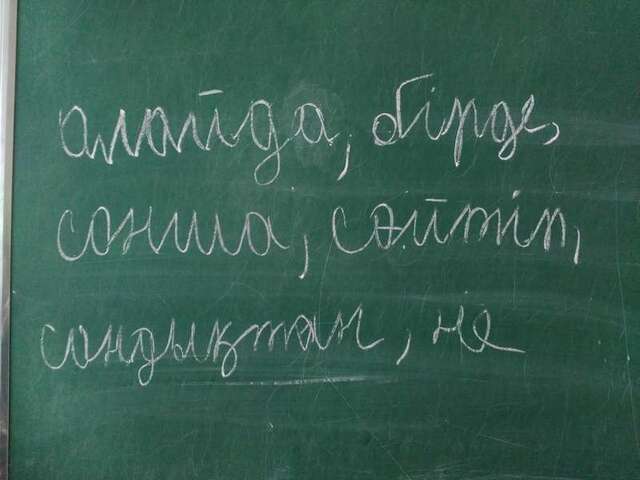 алайда, бірде,
сонша, сөйтіп,
сондықтан, не